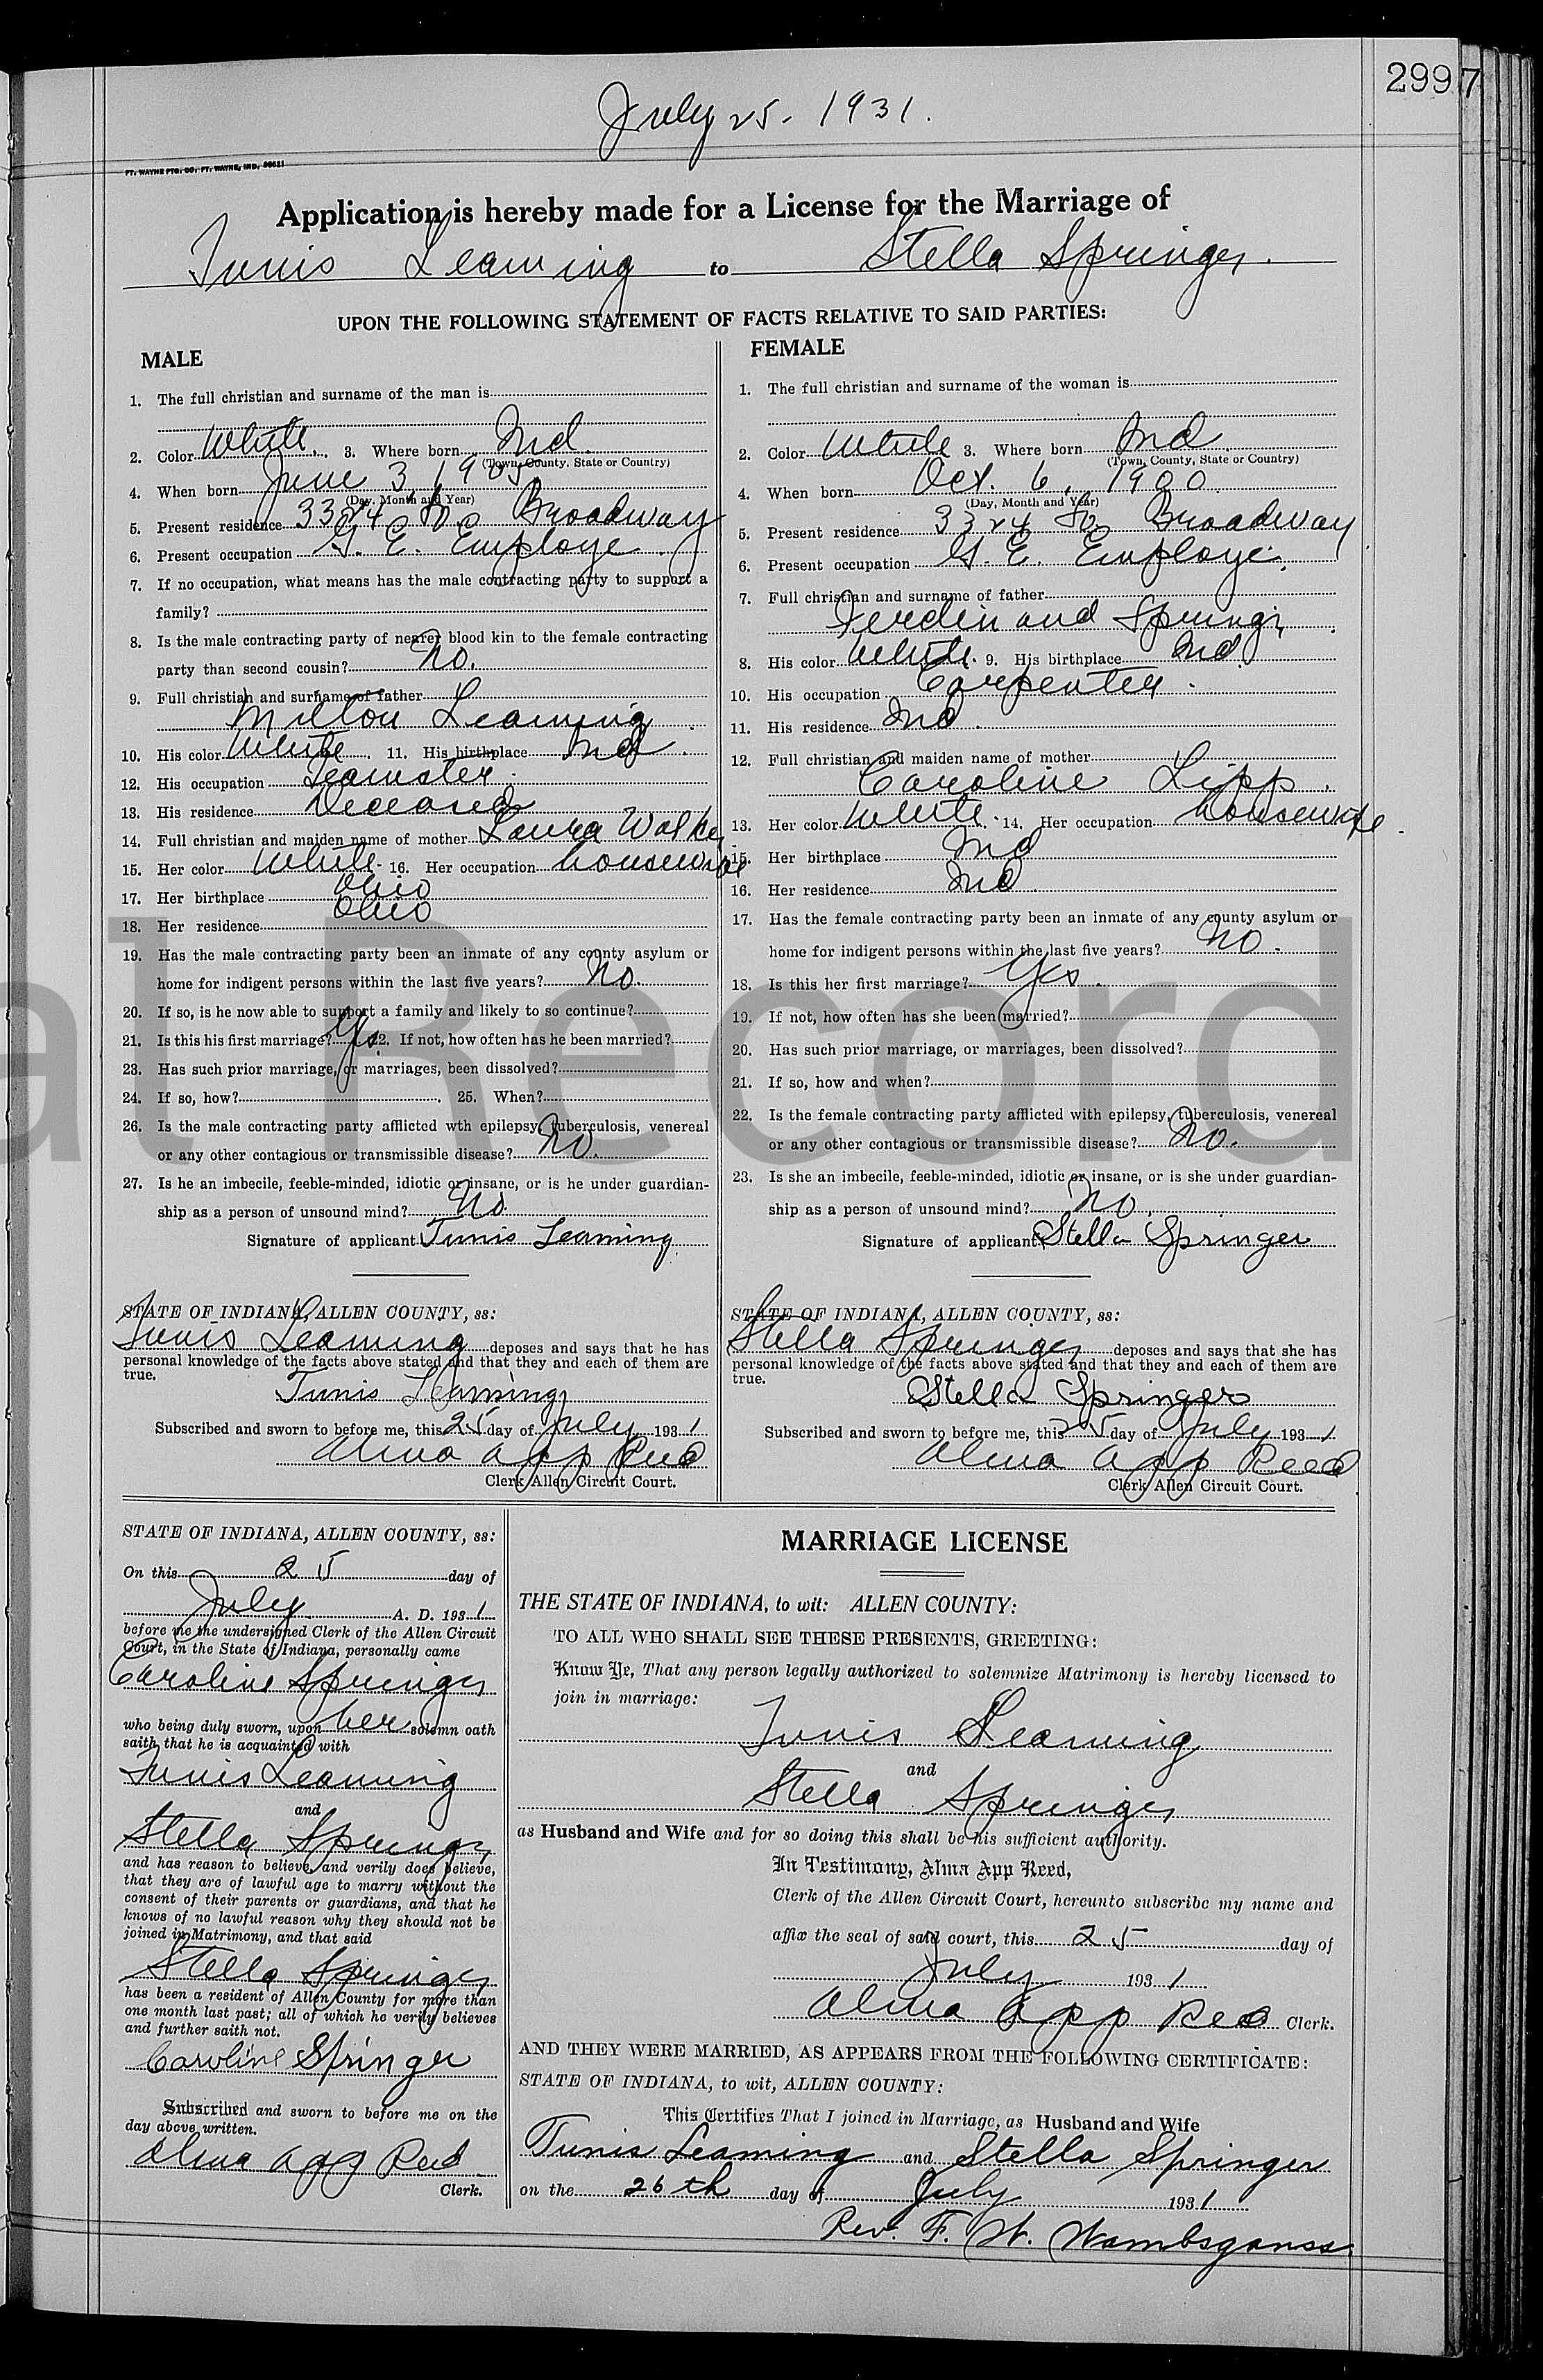 2997
July 25. 1931.
FT. WAYNE PTG. CO., FT. WAYNE, IND.
Application is hereby made for a License for the Marriage of
Tunis Leaming to Stella Springer.
UPON THE FOLLOWING STATEMENT OF FACTS RELATIVE TO SAID PARTIES:
MALE
1. The full christian and surname of the man is
2. Color White. 3. Where born Ind.
(Town, County, State or Country)
4. When born June 3, 1905
(Day, Month and Year)
5. Present residence 3324 So Broadway
6. Present occupation G. E. Employe.
7. If no occupation, what means has the male contracting party to support a
family?
8. Is the male contracting party of nearer blood kin to the female contracting
party than second cousin? No.
9. Full christian and surname of father
Milton Leaming
10. His color White. 11. His birthplace Ind.
12. His occupation Teamster.
13. His residence Deceased
14. Full christian and maiden name of mother Laura Walker
15. Her color White. 16. Her occupation housewife
17. Her birthplace Ohio
18. Her residence Ohio
19. Has the male contracting party been an inmate of any county asylum or
home for indigent persons within the last five years? No.
20. If so, is he now able to support a family and likely to so continue?
21. Is this his first marriage? Yes. 22. If not, how often has he been married?
23. Has such prior marriage, or marriages, been dissolved?
24. If so, how? 25. When?
26. Is the male contracting party afflicted wth epilepsy, tuberculosis, venereal
or any other contagious or transmissible disease? No.
27. Is he an imbecile, feeble-minded, idiotic or insane, or is he under guardian-
ship as a person of unsound mind? No.
Signature of applicant Tunis Leaming
STATE OF INDIANA, ALLEN COUNTY, ss:
Tunis Leaming deposes and says that he has
personal knowledge of the facts above stated and that they and each of them are
true.
Tunis Leaming
Subscribed and sworn to before me, this 25 day of July 1931
Alma App Reed
Clerk Allen Circuit Court.
FEMALE
1. The full christian and surname of the woman is
2. Color White 3. Where born Ind.
(Town, County, State or Country)
4. When born Oct. 6, 1900.
(Day, Month and Year)
5. Present residence 3324 So Broadway
6. Present occupation G. E. Employe.
7. Full christian and surname of father
Ferdinand Springer.
8. His color White. 9. His birthplace Ind.
10. His occupation Carpenter.
11. His residence Ind.
12. Full christian and maiden name of mother
Caroline Lipp.
13. Her color White. 14. Her occupation housewife.
15. Her birthplace Ind
16. Her residence Ind
17. Has the female contracting party been an inmate of any county asylum or
home for indigent persons within the last five years? No.
18. Is this her first marriage? Yes.
19. If not, how often has she been married?
20. Has such prior marriage, or marriages, been dissolved?
21. If so, how and when?
22. Is the female contracting party afflicted with epilepsy, tuberculosis, venereal
or any other contagious or transmissible disease? No.
23. Is she an imbecile, feeble-minded, idiotic or insane, or is she under guardian-
ship as a person of unsound mind? No.
Signature of applicant Stella Springer
STATE OF INDIANA, ALLEN COUNTY, ss:
Stella Springer deposes and says that she has
personal knowledge of the facts above stated and that they and each of them are
true.
Stella Springer
Subscribed and sworn to before me, this 25 day of July 1931
Alma App Reed
Clerk Allen Circuit Court.
al Record
STATE OF INDIANA, ALLEN COUNTY, ss:
On this 25 day of
July A. D. 1931
before me the undersigned Clerk of the Allen Circuit
Court, in the State of Indiana, personally came
Caroline Springer
who being duly sworn, upon her solemn oath
saith that he is acquainted with
Tunis Leaming
and
Stella Springer
and has reason to believe, and verily does believe,
that they are of lawful age to marry without the
consent of their parents or guardians, and that he
knows of no lawful reason why they should not be
joined in Matrimony, and that said
Stella Springer
has been a resident of Allen County for more than
one month last past; all of which he verily believes
and further saith not.
Caroline Springer
Subscribed and sworn to before me on the
day above written.
Alma App Reed
Clerk.
MARRIAGE LICENSE
THE STATE OF INDIANA, to wit: ALLEN COUNTY:
TO ALL WHO SHALL SEE THESE PRESENTS, GREETING:
Know Ye, That any person legally authorized to solemnize Matrimony is hereby licensed to
join in marriage:
Tunis Leaming
and
Stella Springer
as Husband and Wife and for so doing this shall be his sufficient authority.
In Testimony, Alma App Reed,
Clerk of the Allen Circuit Court, hereunto subscribe my name and
affix the seal of said court, this 25 day of
July 1931
Alma App Reed Clerk.
AND THEY WERE MARRIED, AS APPEARS FROM THE FOLLOWING CERTIFICATE:
STATE OF INDIANA, to wit, ALLEN COUNTY:
This Certifies That I joined in Marriage, as Husband and Wife
Tunis Leaming and Stella Springer
on the 26th day of July 1931
Rev. F. W. Wambsganss